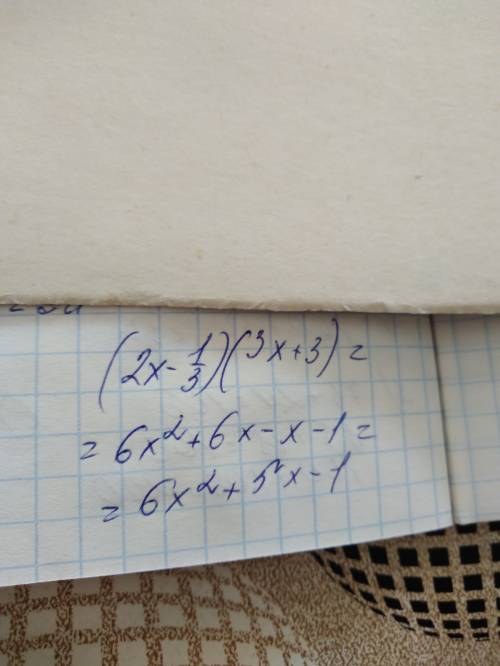 (2x - 1/3)(3x + 3) =
= 6x² + 6x - x - 1 =
= 6x² + 5x - 1